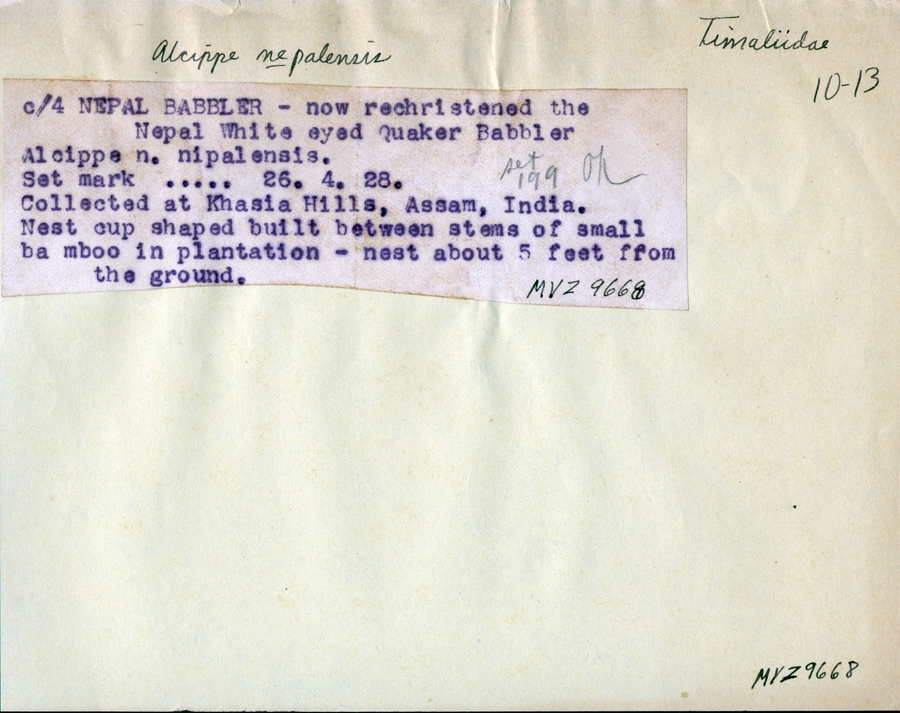 Alcippe nepalensis
Timaliidae
10-13
c/4 NEPAL BABBLER - now rechristened the
Nepal White eyed Quaker Babbler
Alcippe n. nipalensis.
set 199 OK
Set mark ..... 26. 4. 28.
Collected at Khasia Hills, Assam, India.
Nest cup shaped built between stems of small
ba mboo in plantation - nest about 5 feet ffrom
the ground.
MVZ 9668
MVZ 9668